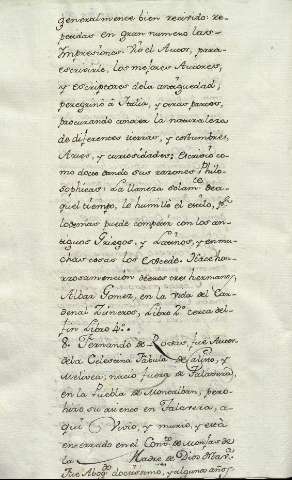 generalmente bien recivido: re-
petidas en gran numero las
Impresiones. Vio el Autor, para
escrivirle, los mejores Autores,
y escriptores de la antiguedad;
peregrinò a Italia, y otras partes,
procurando conocer la naturaleza
de diferentes tierras, y costumbres,
Artes, y curiosidades; Escrivio co-
mo docto dando sus razones Philo-
sophicas: La llaneza solamte de a-
quel tiempo, le humilló el estilo, pr
lo demas puede competir con los an-
tiguos Griegos, y Latinos, y en mu-
chas cosas los excede. Hace hon-
rosa mencion de estos tres hermans,
Albar Gomez, en la vida del Car-
denal Zisneros, Libro 2º cerca del
fin Libro 4º.
8. Fernando de Roxas, fue Autor
de la Celestina Fabula de Calixto, y
Melivea; nació fuera de Talavera,
en la Puebla de Montalban, pero
hizo su asiento en Talavera, a-
qui Vivio, y murio, y està
enterrado en el Convto de Monjas de
la Madre de Dios
Fue Abogdo doctissimo, y algunos años,